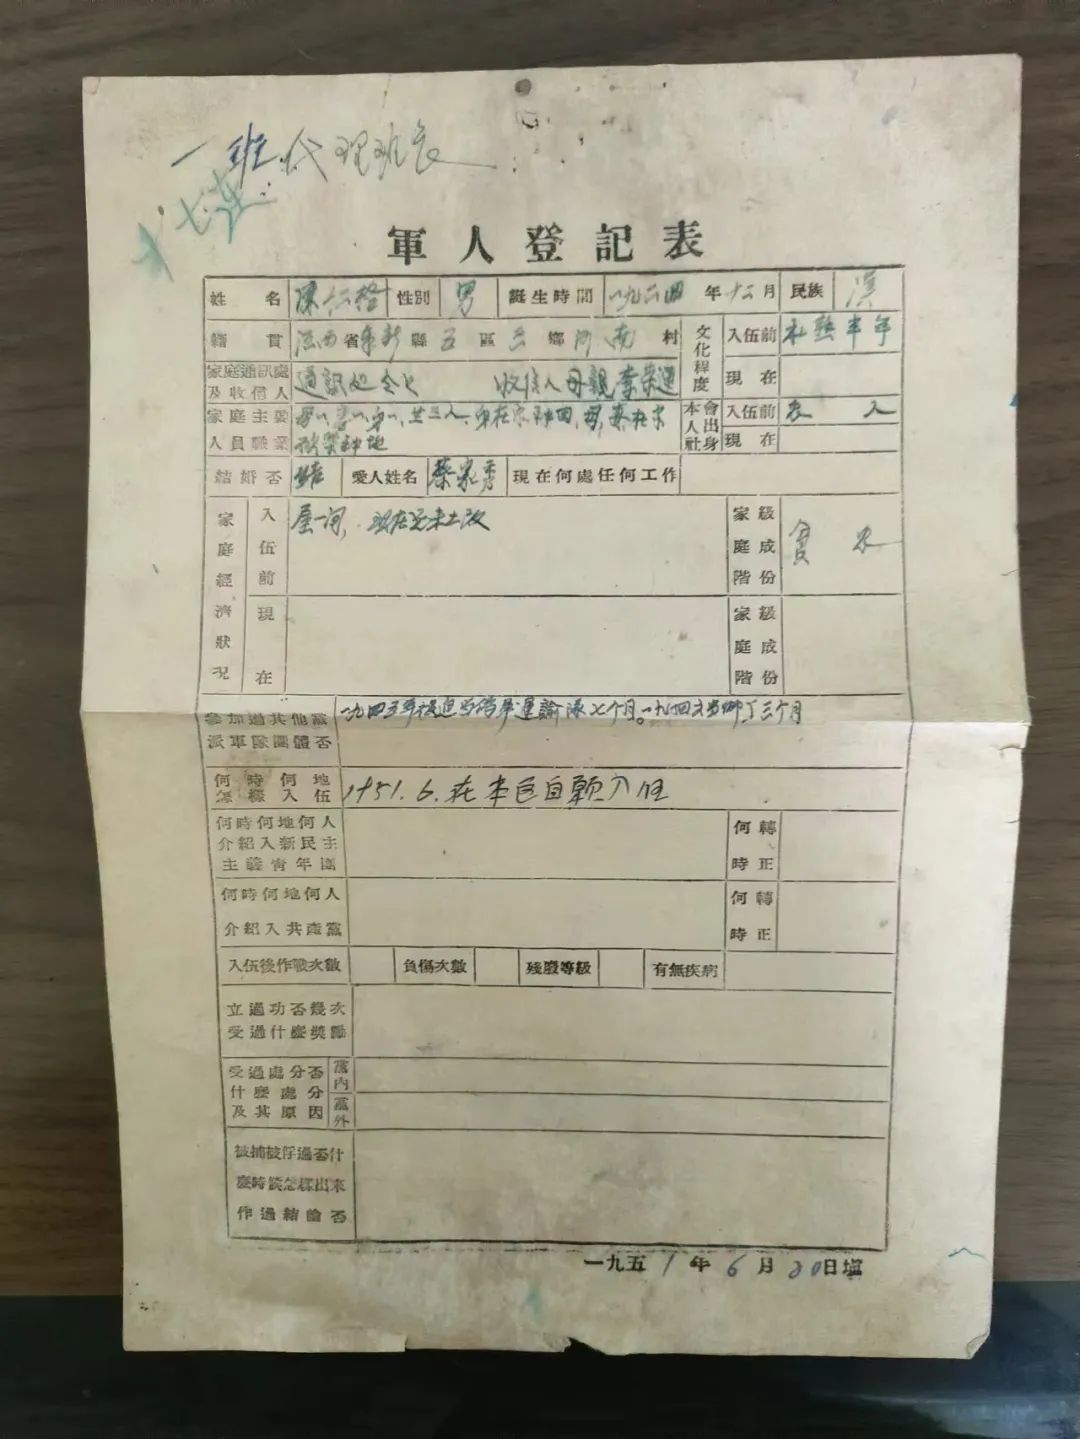 一班代理班长
七连
軍人登記表
姓名 陳仁 性別 男 誕生時間 一九二四 年 十二 月 民族 漢
籍貫 江西 省 奉新 縣 五 區 三 鄉 南 村 文化程度 入伍前 私塾半年
家庭通訊處及收信人 通訊处 收信人母親李 現在
家庭主要人員職業 在家种田 种地 本人社會出身 入伍前 农人
現在
結婚否 愛人姓名 蔡家秀 現在何處任何工作
家庭經濟狀況 入伍前 屋一间，現在还未土改 家庭階級成份 貧农
現在 家庭階級成份
參加過其他黨派軍隊團體否 一九四五年被迫当偽軍運諭隊七个月。一九四六当鄉丁三个月
何時何地怎樣入伍 1951.6.在本區自願入伍
何時何地何人介紹入新民主主義青年團 何時轉正
何時何地何人介紹入共產黨 何時轉正
入伍後作戰次數 負傷次數 殘廢等級 有無疾病
立過功否幾次受過什麼獎勵
受過處分否什麼處分及其原因 黨內
黨外
被捕被俘過否什麼時候怎樣出來作過結論否
一九五1年6月20日填